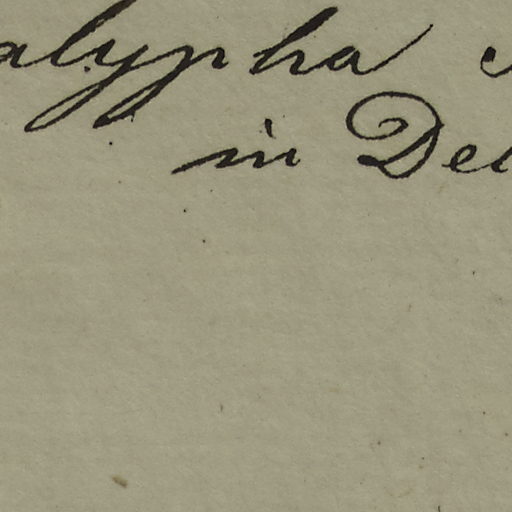 alypha
in De